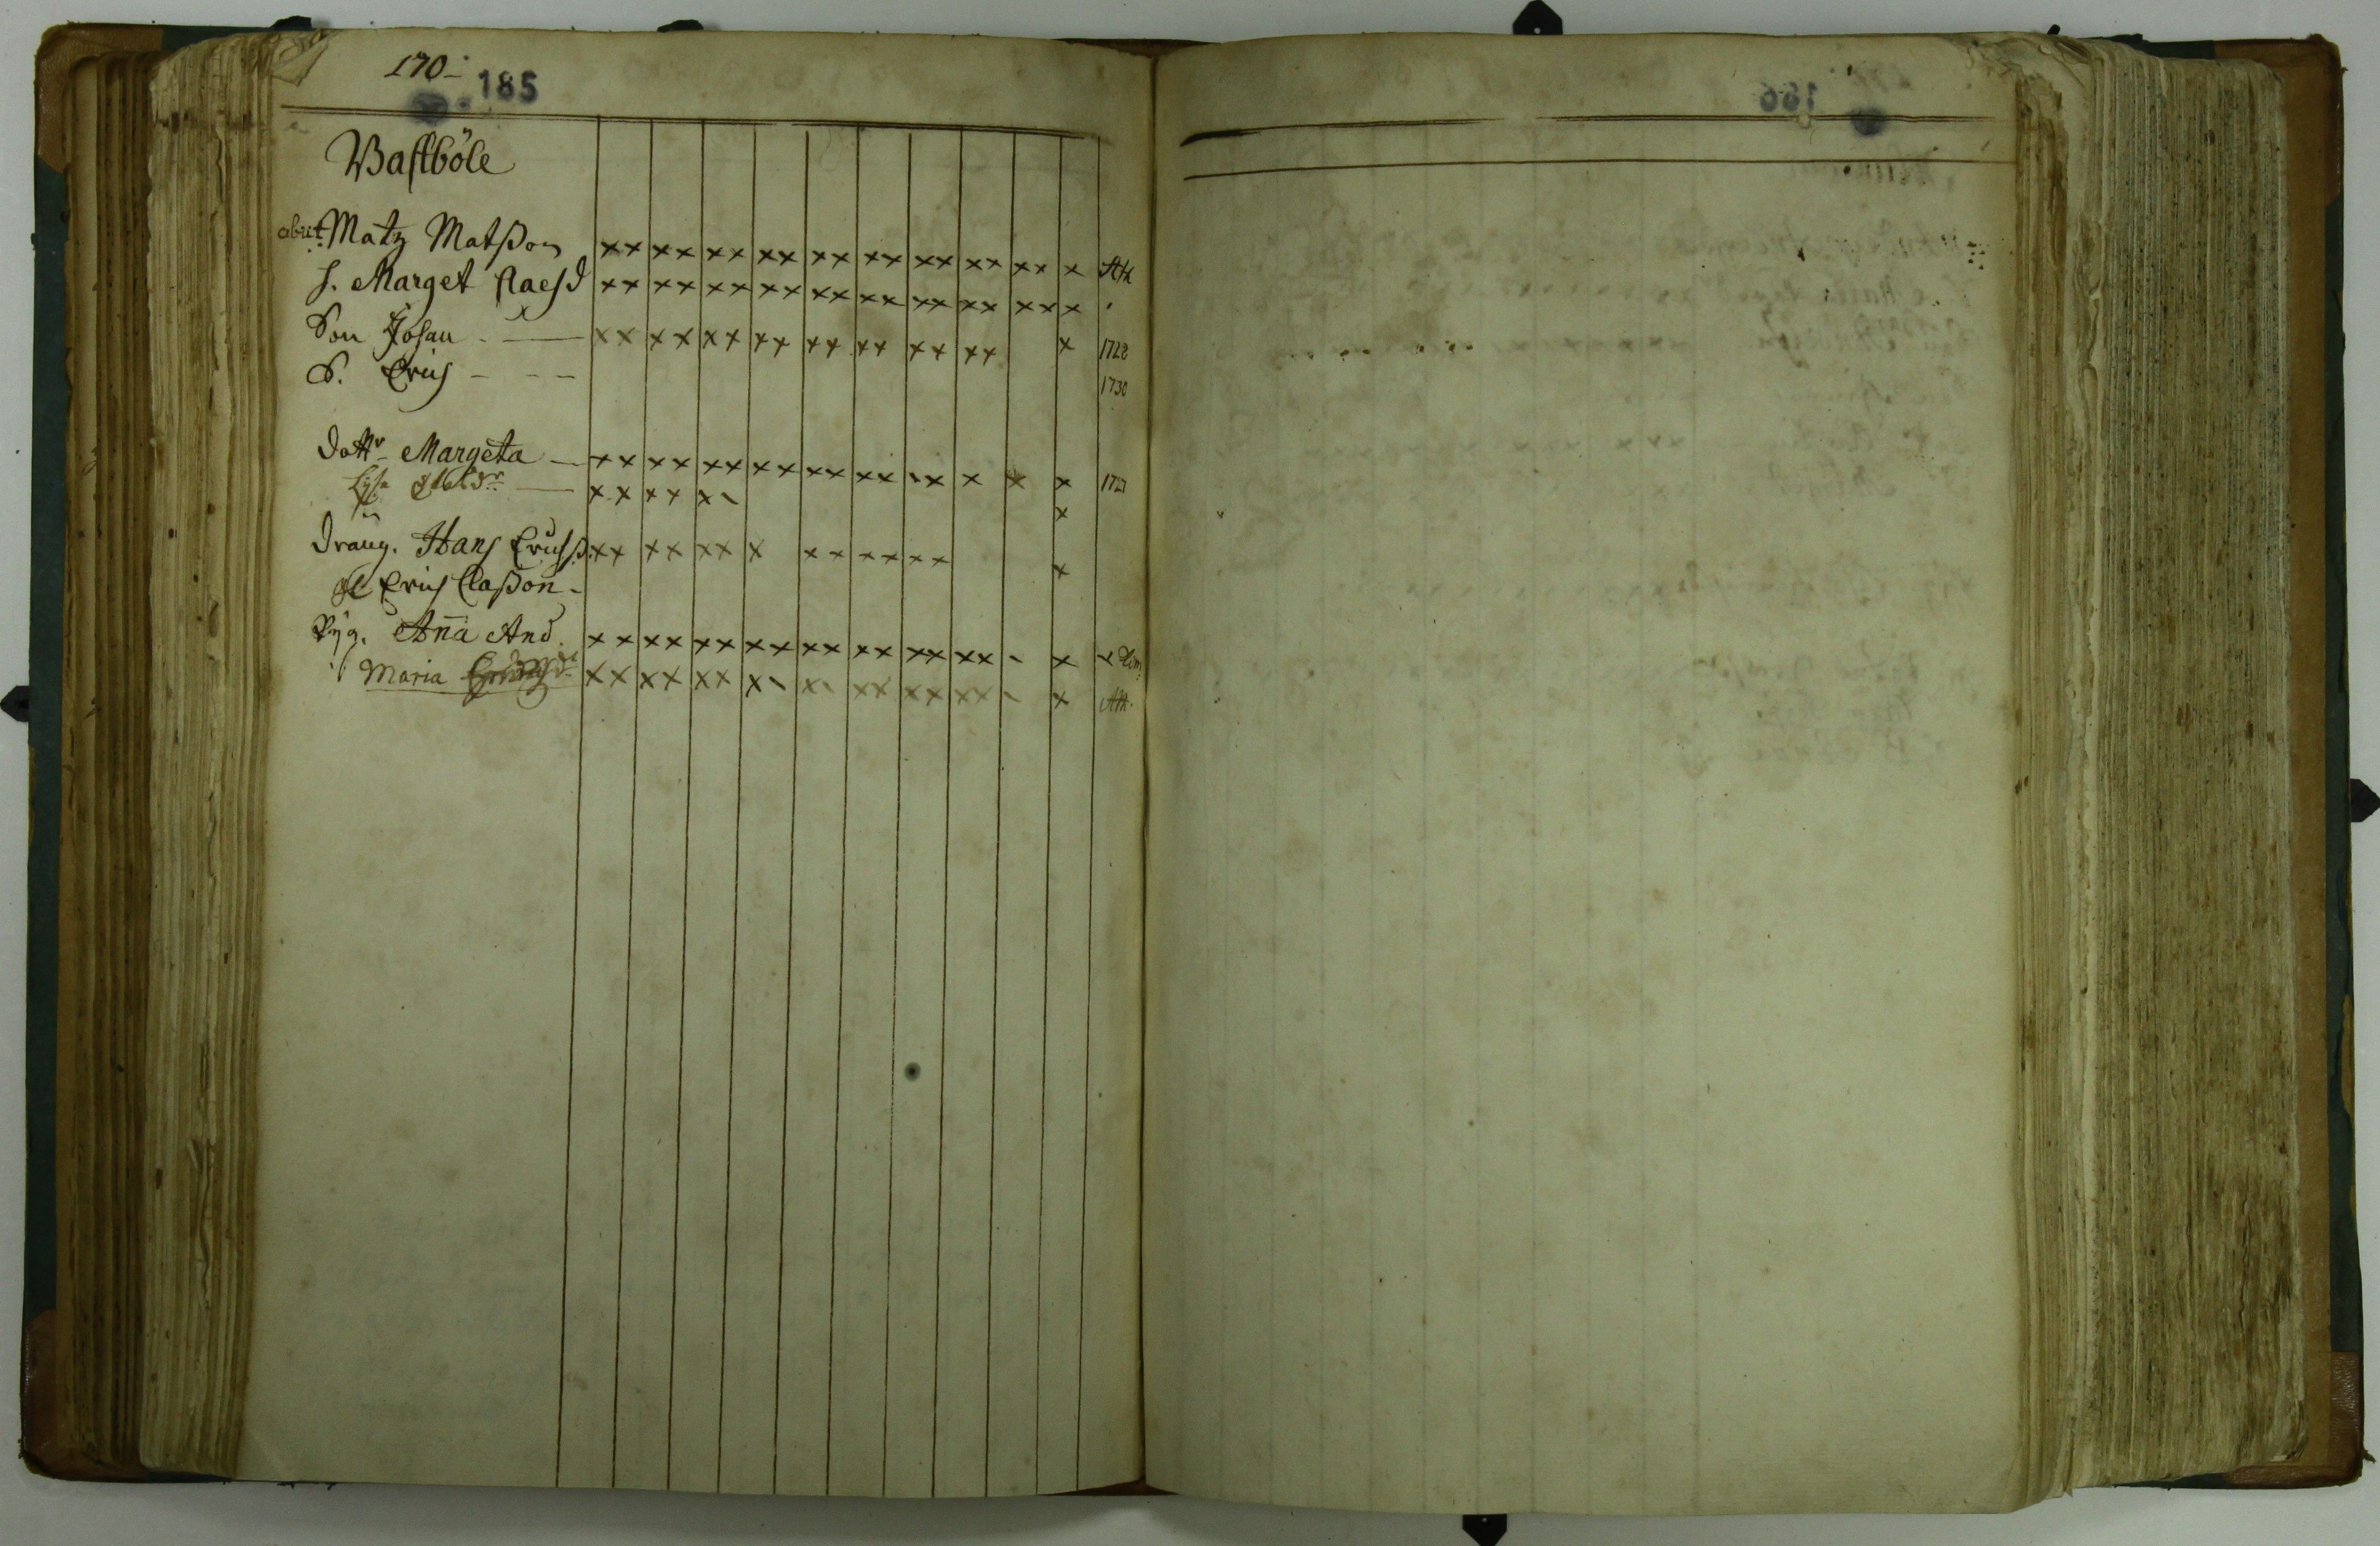 170
185
Bastböle
abiit Matz Matßon ×× ×× ×× ×× ×× ×× ×× ×× ×× × Att
h. Marget Claesd ×× ×× ×× ×× ×× ×× ×× ×× ×× ×
Son Johan ×× ×× ×× ×× ×× ×× ×× ×× × 1728
S. Erich 1730
Dottr Margeta ×× ×× ×× ×× ×× ×× ×× × × ×
Lisa ×× ×× × ×
Dräng. Hans Erichß. ×× ×× ×× × ×× ×× ×× ×
Erich Claßon
Pig. Anna And. ×× ×× ×× ×× ×× ×× ×× ×× - ×
Maria ×× ×× ×× ×- ×- ×× ×× ×× - × Att.
186